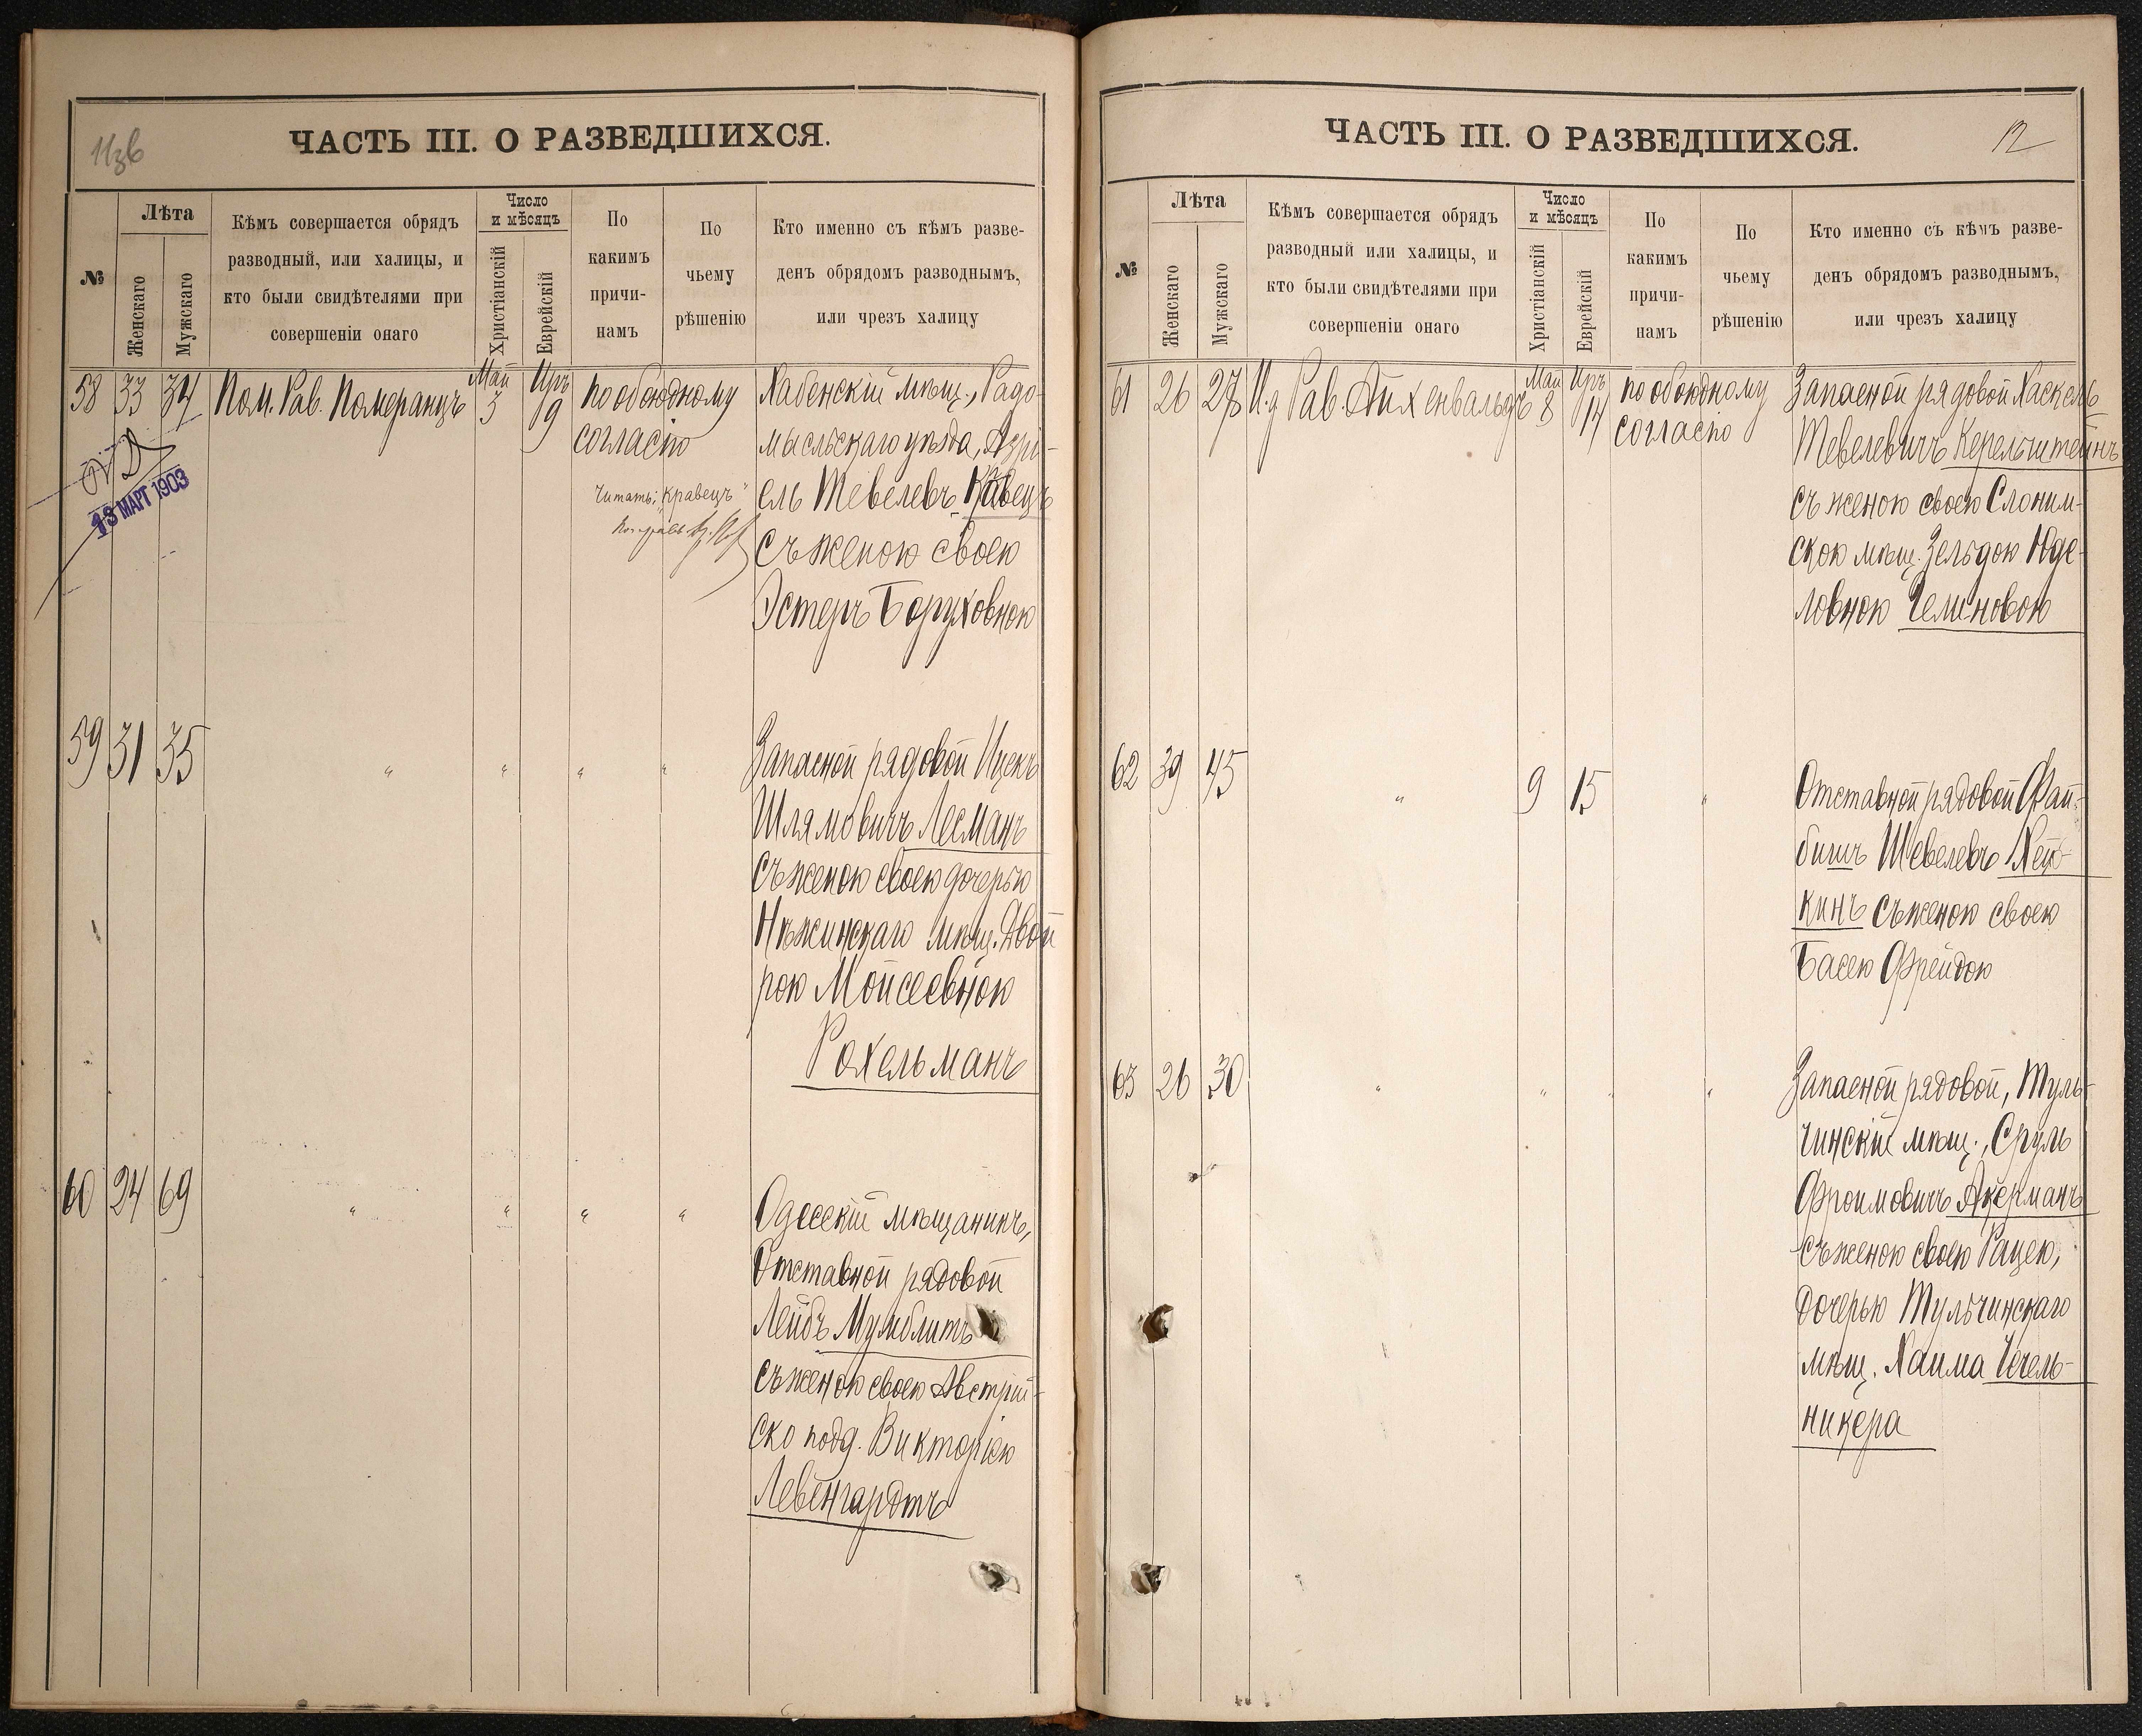 ЧАСТЬ III. О РАЗВЕДШИХСЯ.
№
Лѣта
Женскаго
Мужскаго
Кѣмъ совершается обрядъ
разводный, или халицы, и
кто были свидѣтелями при
совершеніи онаго
Число
и мѣсяцъ
Христіанскій
Еврейскій
По
какимъ
причи-
намъ
По
чьему
рѣшенію
Кто именно съ кѣмъ разве-
денъ обрядомъ разводнымъ,
или чрезъ халицу
58 33 34 Пом. Рав. Померанцъ Май 3 Иръ 9 по обоюдному
согласію
13 МАРТ 1903
Читать: „Кравецъ"
Хабенскій мѣщ., Радо-
мысльскаго уѣзда, Азрі-
ель Тевелевъ Кавецъ
съ женою своею
Эстеръ Боруховною
59 31 35 " " " "
Запасной рядовой Ицекъ
Шлямовичъ Лесманъ
съ женою своею дочерью
Нѣжинскаго мѣщ. Двой
рою Мойсеевною
Рохельманъ
60 24 69 " " " "
Одесскій мѣщанинъ,
Отставной рядовой
Лейбъ Мумблитъ
съ женою своею Австрій-
ско подд. Викторіею
Левенгардтъ
ЧАСТЬ III. О РАЗВЕДШИХСЯ.
12
№
Лѣта
Женскаго
Мужскаго
Кѣмъ совершается обрядъ
разводный или халицы, и
кто были свидѣтелями при
совершеніи онаго
Число
и мѣсяцъ
Христіанскій
Еврейскій
По
какимъ
причи-
намъ
По
чьему
рѣшенію
Кто именно съ кѣмъ разве-
денъ обрядомъ разводнымъ,
или чрезъ халицу
61 26 27 И.д Рав. Айхенвальдъ Май 8 Иръ 14 по обоюдному
согласію
Запасной рядовой Хаскель
Тевелевичъ Керельштейнъ
съ женою своею Слоним-
скою мѣщ. Зельдою Юде-
ловною Челиновою
62 39 45 " 9 15 "
Отставной рядовой Фай-
бишъ Шевелевъ Хей-
кинъ съ женою своею
Басею Фрейдою
63 26 30 " " " "
Запасной рядовой, Туль-
чинскій мѣщ., Сруль
Фроимовичъ Акерманъ
съ женою своею Рацею,
дочерью Тульчинскаго
мѣщ. Хаима Чечель-
никера